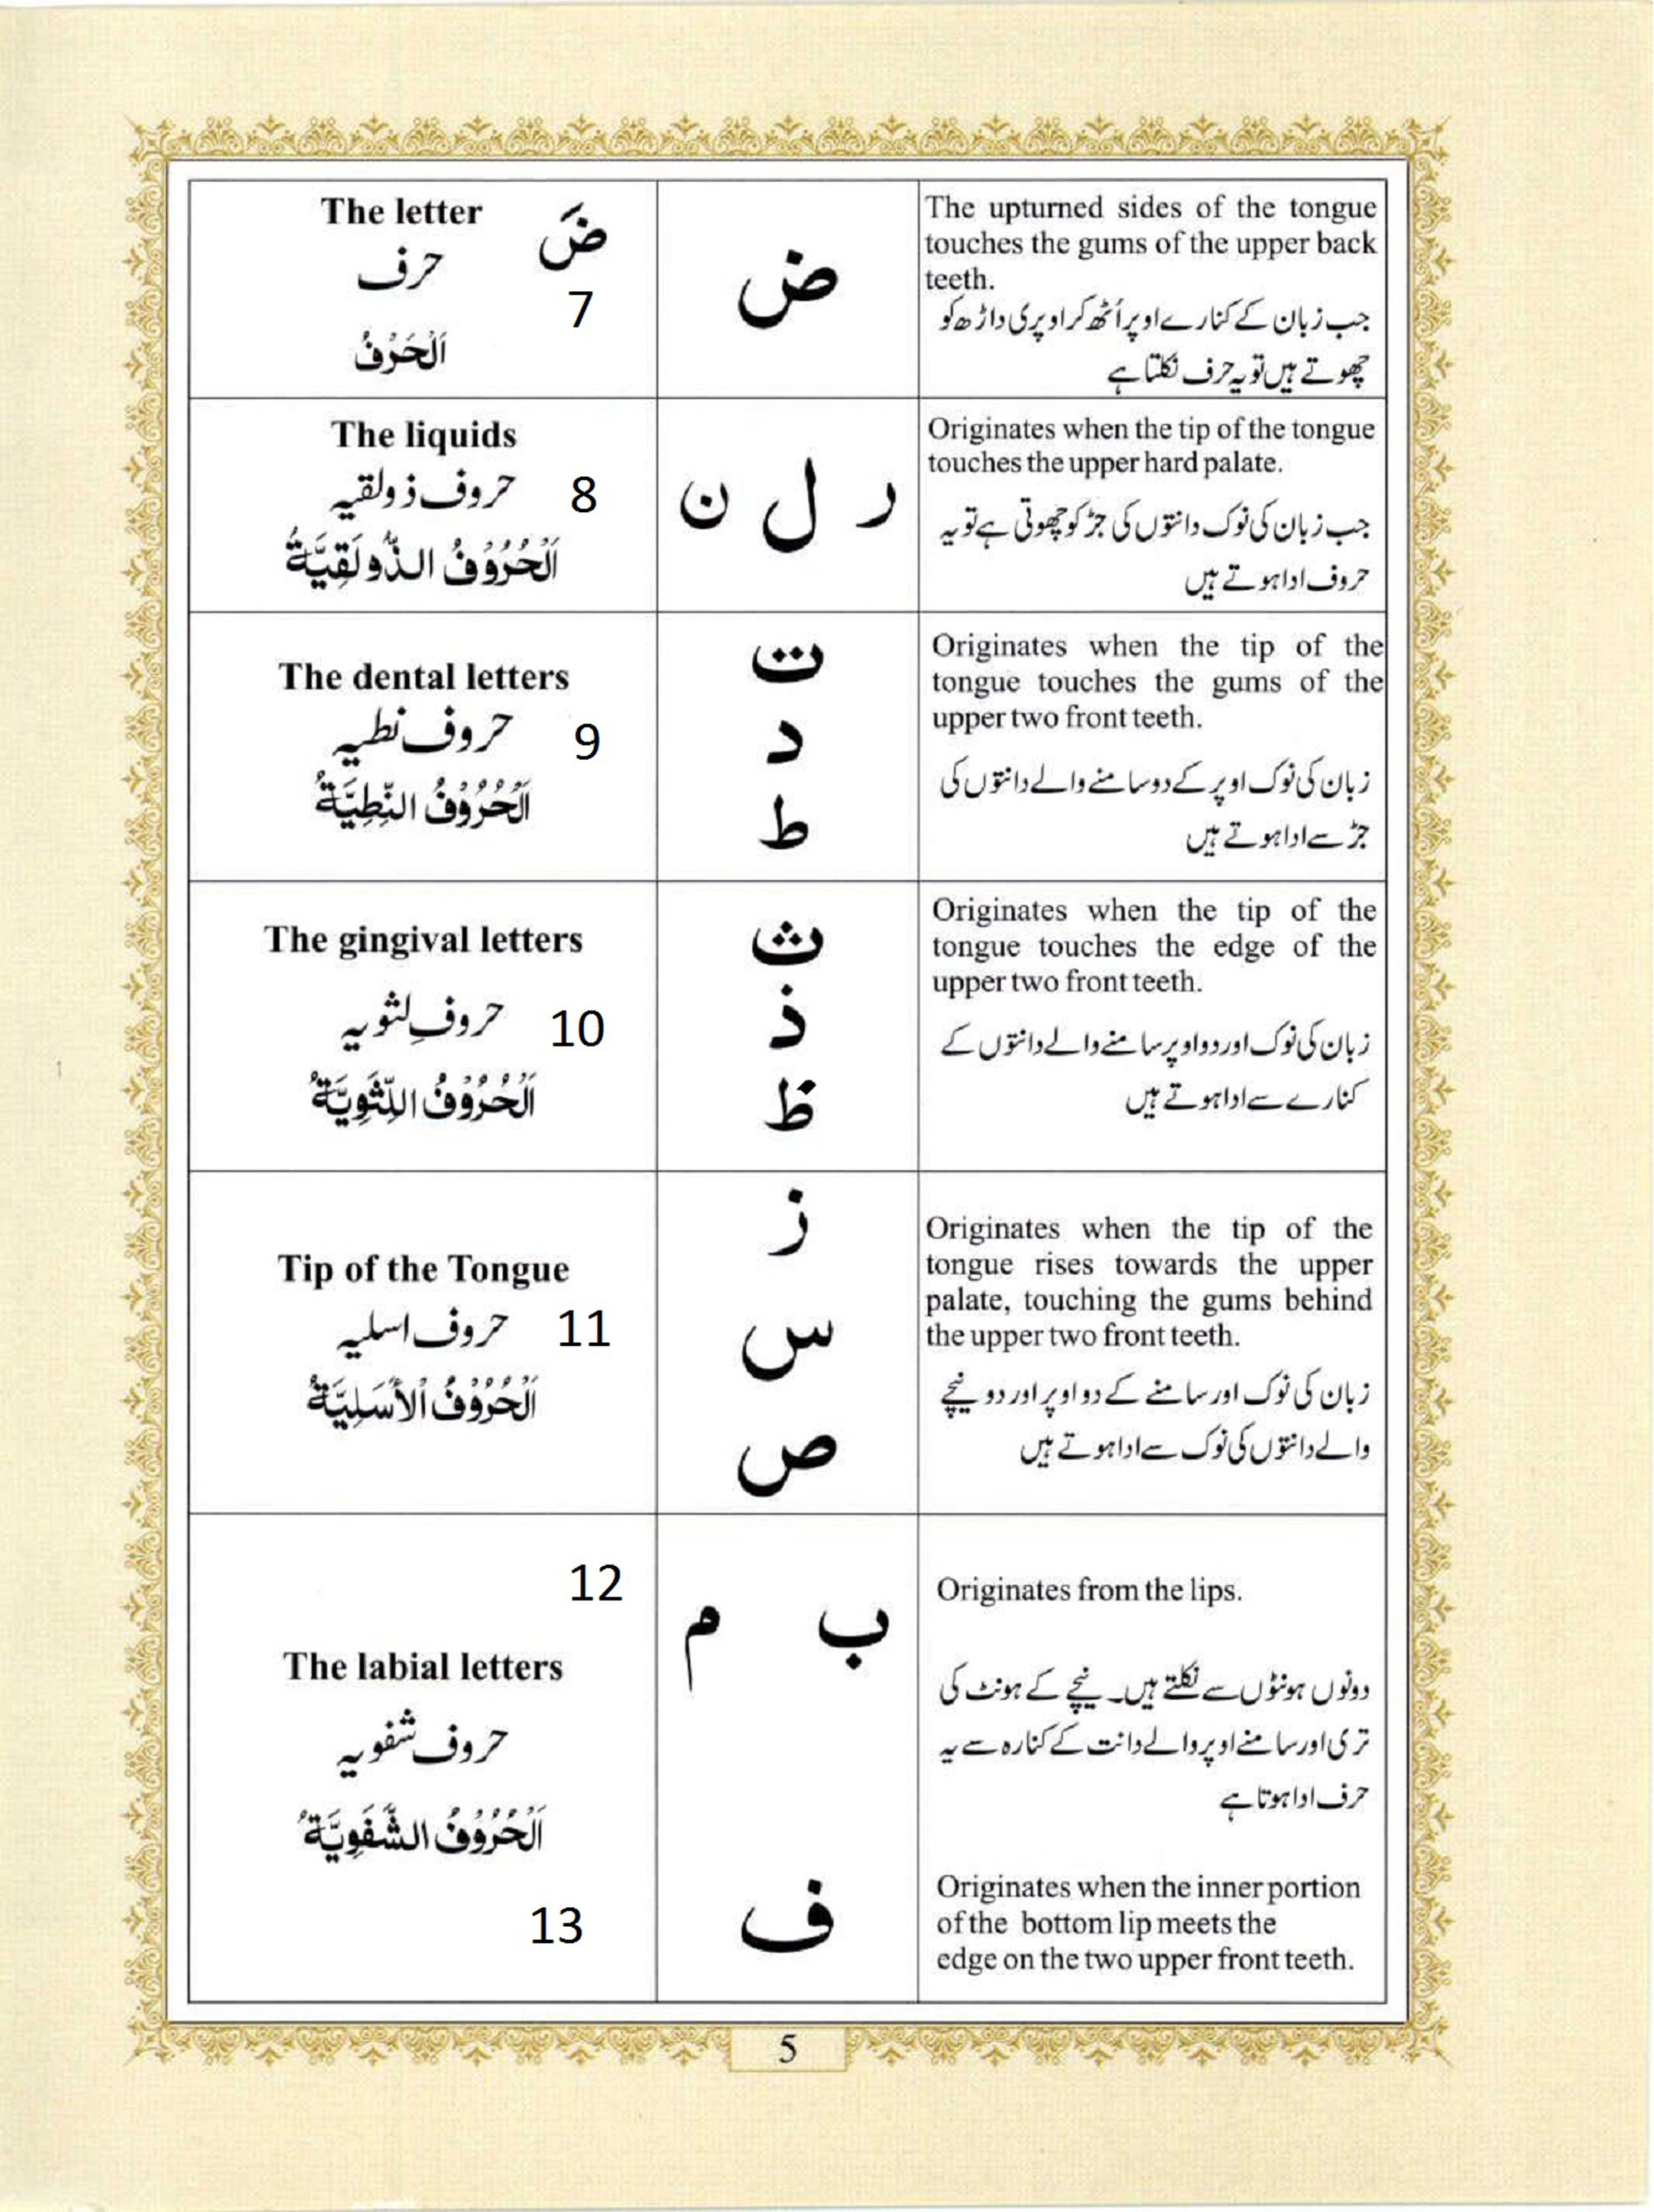 The letter ضَ
حرف
7
اَلْحَرْفُ
ض
The upturned sides of the tongue
touches the gums of the upper back
teeth.
جب زبان کے کنارے اوپر اُٹھ کر اوپری داڑھ کو
چھوتے ہیں تو یہ حرف نکلتا ہے
The liquids
حروف ذولقیہ 8
اَلْحُرُوْفُ الذُّولَقِيَّةُ
ر ل ن
Originates when the tip of the tongue
touches the upper hard palate.
جب زبان کی نوک دانتوں کی جڑ کو چھوتی ہے تو یہ
حروف ادا ہوتے ہیں
The dental letters
حروف نطیہ 9
اَلْحُرُوْفُ النِّطِيَّةُ
ت
د
ط
Originates when the tip of the
tongue touches the gums of the
upper two front teeth.
زبان کی نوک اوپر کے دو سامنے والے دانتوں کی
جڑ سے ادا ہوتے ہیں
The gingival letters
حروفِ لثویہ 10
اَلْحُرُوْفُ اللِّثَوِيَّةُ
ث
ذ
ظ
Originates when the tip of the
tongue touches the edge of the
upper two front teeth.
زبان کی نوک اور دو اوپر سامنے والے دانتوں کے
کنارے سے ادا ہوتے ہیں
Tip of the Tongue
حروف اسلیہ 11
اَلْحُرُوْفُ الْأَسَلِيَّةُ
ز
س
ص
Originates when the tip of the
tongue rises towards the upper
palate, touching the gums behind
the upper two front teeth.
زبان کی نوک اور سامنے کے دو اوپر اور دو نیچے
والے دانتوں کی نوک سے ادا ہوتے ہیں
12
The labial letters
حروف شفویہ
اَلْحُرُوْفُ الشَّفَوِيَّةُ
13
ب م
ف
Originates from the lips.
دونوں ہونٹوں سے نکلتے ہیں۔ نیچے کے ہونٹ کی
تری اور سامنے اوپر والے دانت کے کنارہ سے یہ
حرف ادا ہوتا ہے
Originates when the inner portion
of the bottom lip meets the
edge on the two upper front teeth.
5